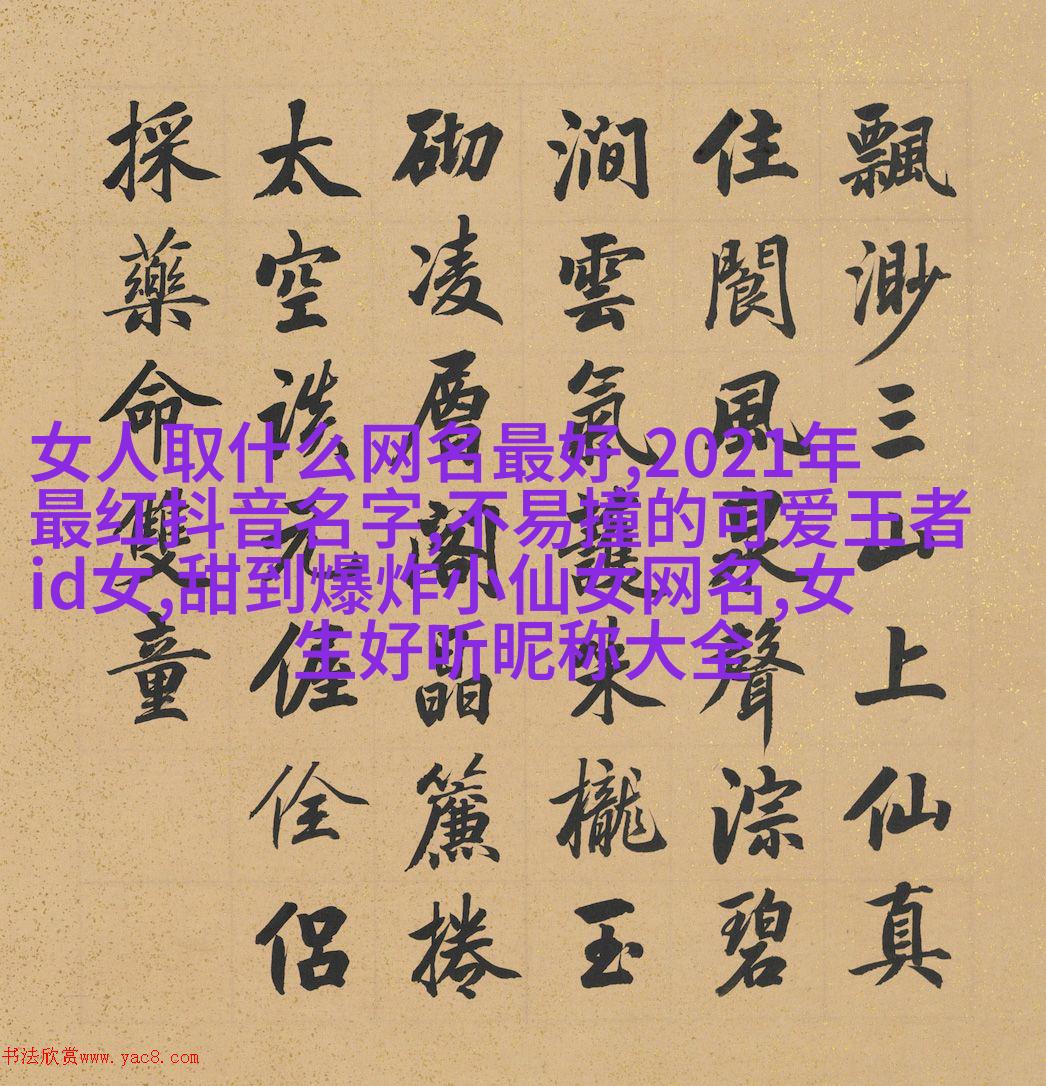 飄渺三山上仙真
住閬風泉聲淙碧
澗雲氣護朱櫳玉
砌凌層閣晶簾捲
太空元偓佺侶
採藥命雙童
女人取什么网名最好,2021年
最红抖音名字,不易撞的可爱王者
id女,甜到爆炸小仙女网名,女
生好听昵称大全
书法欣赏www.yac8.com